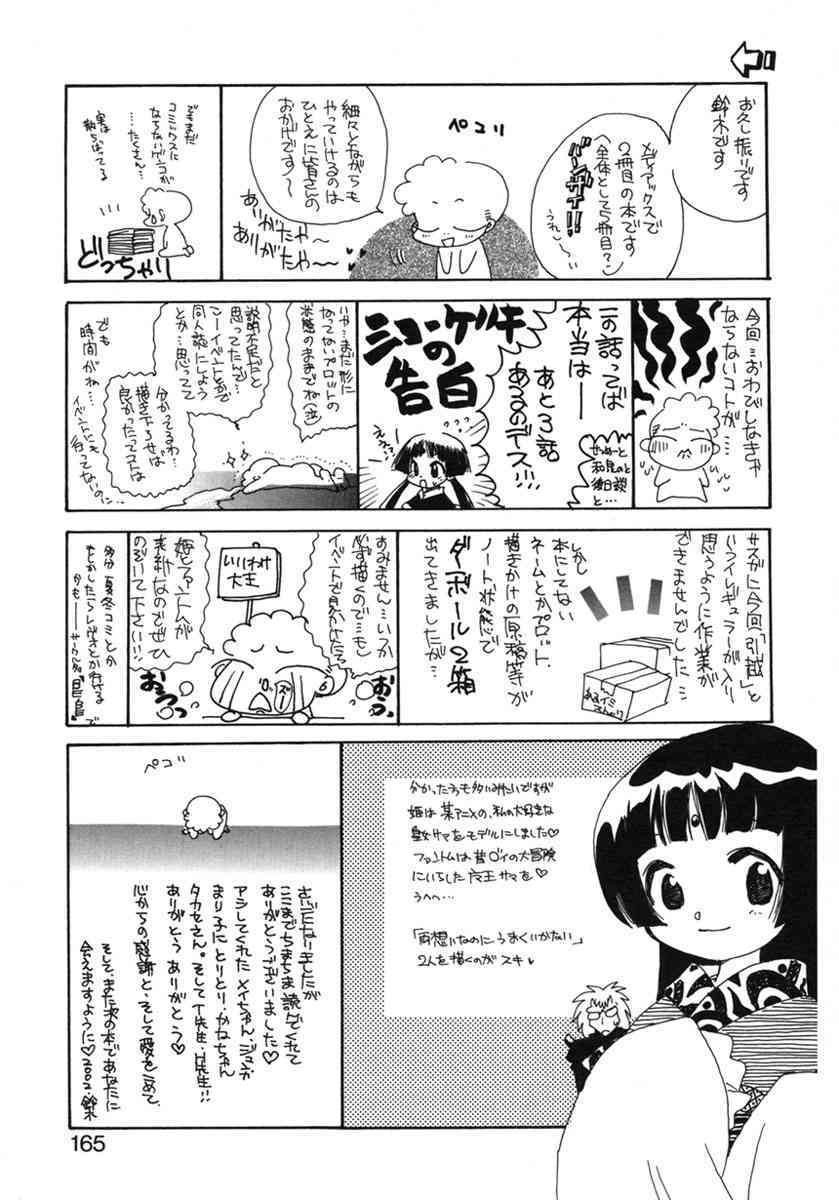 お久し振りです
鈴木です
メディアックスで
2冊目の本です
(全体として5冊目?)
バンザーイ!!
うれし〜
ペコリ
細々とながらも
やっていけるのは
ひとえに皆さんの
おかげです〜
ありがたや〜
ありがたや〜
でもまだ
コミックスに
ならないゲンコが
…たくさん…
実は
散らばってる
どっちゃり
今回…おわびしなきゃ
ならないコトが……
この話ってば
本当は――
あと3話
あるのデス…!!
せつめーと
和見のと
後日談
と…
ショーゲキ
の
告白
えぇっ
いや…まだ形に
なってないプロットの
状態のままでね(泣)
説明不足だと
思ってたんで…
こーイベントとかで
同人誌にしよう
とか…思ってて
分かってるわ…
描き下ろせば
良かったってコトは
でも
時間がね…
イベントにも
行ってないの…
サスがに今回「引越」と
いうイレギュラーが入り
思うように作業が
できませんでした…
しかし
本にしてない
ネームとかプロット、
描きかけの原稿等が
ノート状態で
ダンボール2箱
出てきましたが…
すみません…いつか
必ず描くので…もし
イベントで見かけたら
いいわけ
大王
姫とファントムが
素敵なのでぜひ
のぞいて下さい!!!
おうっ
おうっ
多分 夏冬コミとか
もしかしたらレヴォとか行ける
かも――
分かった方も多いみたいですが
姫は某アニメの、私の大好きな
皇女サマをモデルにしました♡
ファントムは昔ダイの大冒険
にいらした魔王サマを♡
うへへ…
「両想いなのにうまくいかない」
2人を描くのがスキ♥
ペコリ
ここまでちまちま読んでくれて
ありがとうございました♡
アシしてくれたメイちゃん、ジュンカ
まり子にとりとり・かなちゃん
タカセさん。そしてT先生・H先生!!
ありがとう ありがとう♡
心からの感謝と、そして愛をこめて
そして、また次の本であなたに
会えますように♡2002.鈴木
165